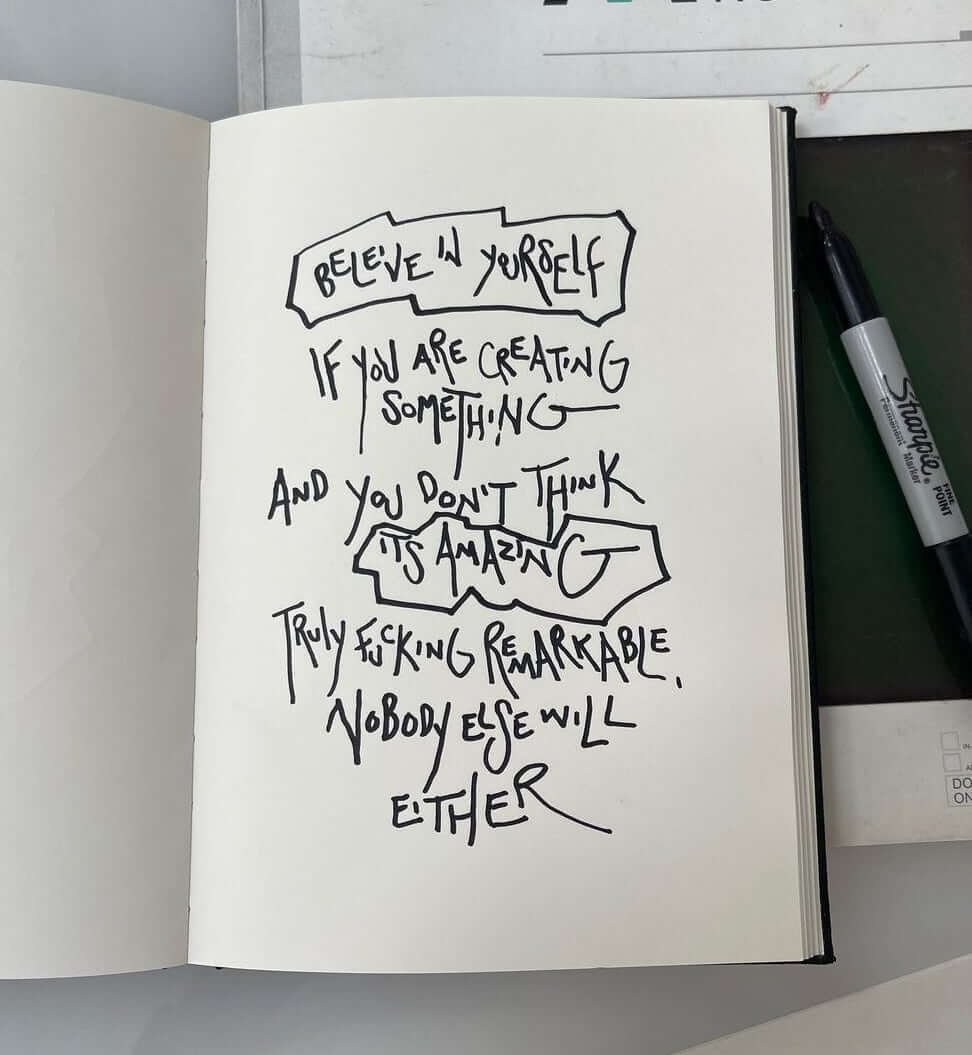 BELEIVE IN YOURSELF
IF YOU ARE CREATING
SOMETHING
AND YOU DON'T THINK
ITS AMAZING
TRULY FUCKING REMARKABLE,
NOBODY ELSE WILL
EITHER
Sharpie
Permanent Marker
FINE POINT
DO
ON